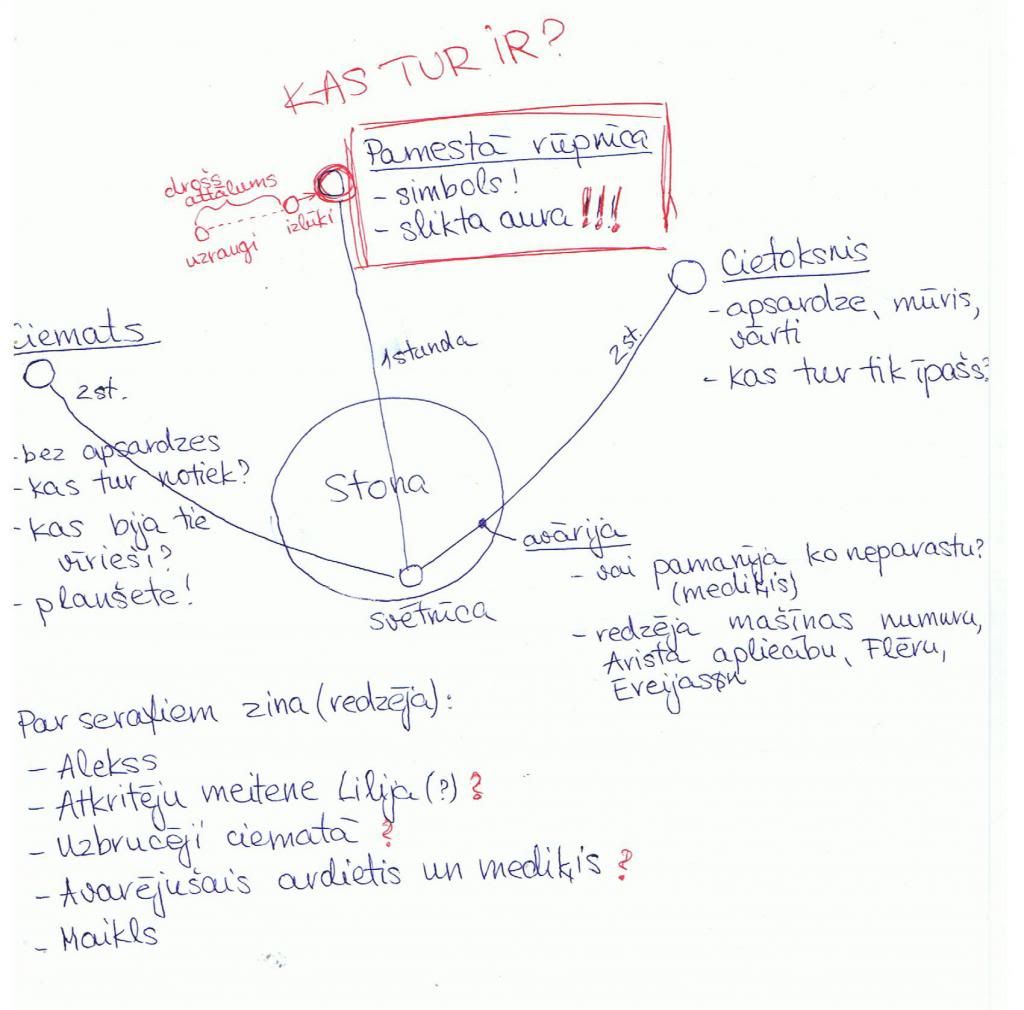 KAS TUR IR?
Pamestā rūpnīca
- simbols!
- slikta aura !!!
drošs
attālums
izlūki
uzraugi
Cietoksnis
- apsardze, mūris,
vārti
- kas tur tik īpašs?
Ciemats
2st.
1stunda
2st.
- bez apsardzes
- kas tur notiek?
- kas bija tie
vīrieši?
- planšete!
Stona
svētnīca
avārija
- vai pamanīja ko neparastu?
(mediķis)
- redzēja mašīnas numuru,
Arista apliecību, Flēru,
Par serafiem zina (redzēja):
- Alekss
- Atkritēju meitene Lilija (?) ?
- Uzbrucēji ciematā ?
- Avarējušais ardietis un mediķis ?
- Maikls